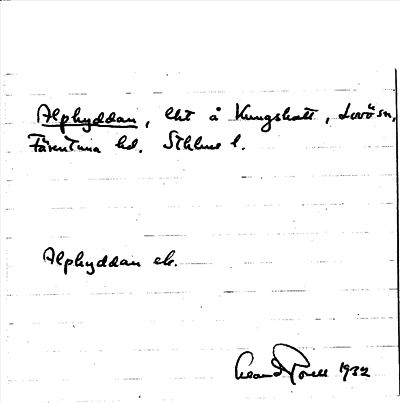 Alphyddan, lht å Kungshatt, Lovö sn,
Färentuna hd. Sthlms l.
Alphyddan ek.
1932